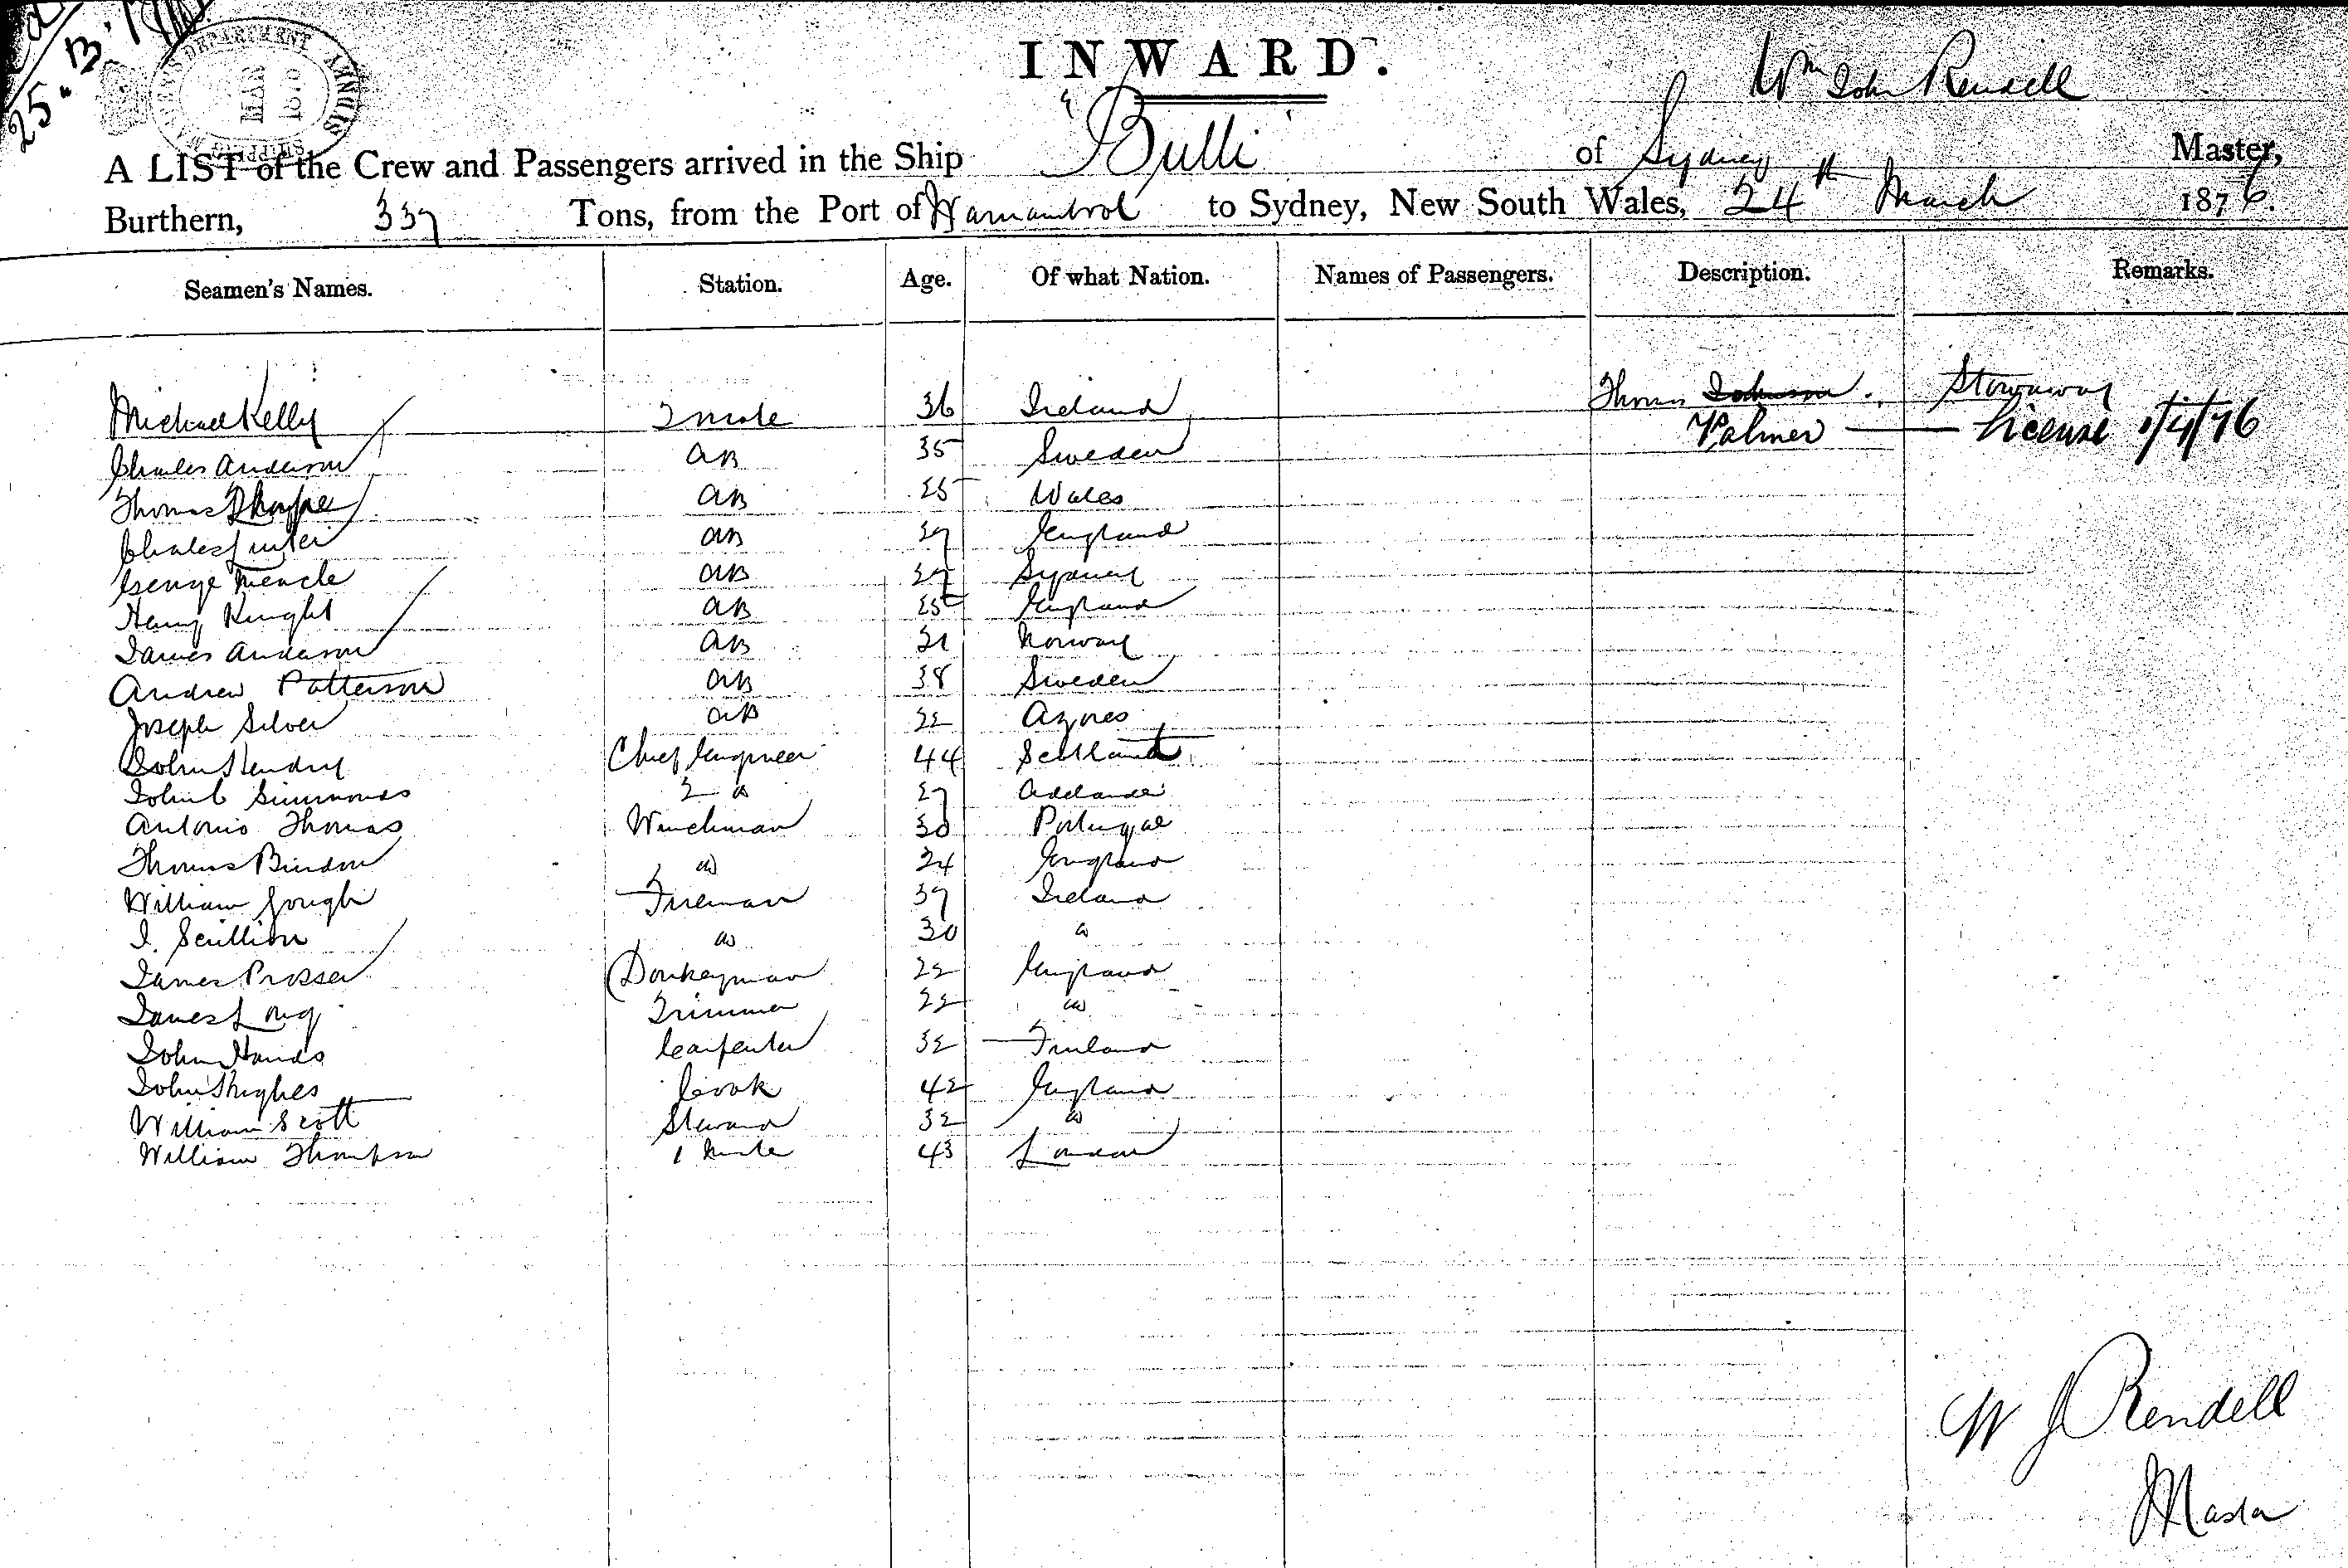 25.
DEPARTMENT
MAR
INWARD.
Wm John Rendell
A LIST of the Crew and Passengers arrived in the Ship "Bulli" of Sydney Master,
Burthern, 337 Tons, from the Port of Warnambool to Sydney, New South Wales, 24th March 1876.
Seamen's Names. Station. Age. Of what Nation. Names of Passengers. Description. Remarks.
Michael Kelly 2 Mate 36 Ireland Thomas Johnson. Stowaway
Palmer — License 1/4/76
Charles Anderson AB 35 Sweden
Thomas Thorpe AB 25 Wales
Charles AB England
George AB Sydney
Henry Knight AB 25 England
James Anderson AB Norway
Andrew Patterson AB 38 Sweden
Joseph Silver AB 22 Azores
John Hendry Chief Engineer 44 Scotland
John C Simmonds 2 do 27 Adelaide
Antonio Thomas Winchman 30 Portugal
Thomas Bindon do 24 England
William Gough Fireman 37 Ireland
J. Scullion do 30 do
James Prosser Donkeyman 22 England
James Long Trimmer 22 do
John Hands Carpenter 32 Finland
John Hughes Cook 42 England
William Scott Steward 32 do
William Thompson 1 Mate 43 London
W J Rendell
Master